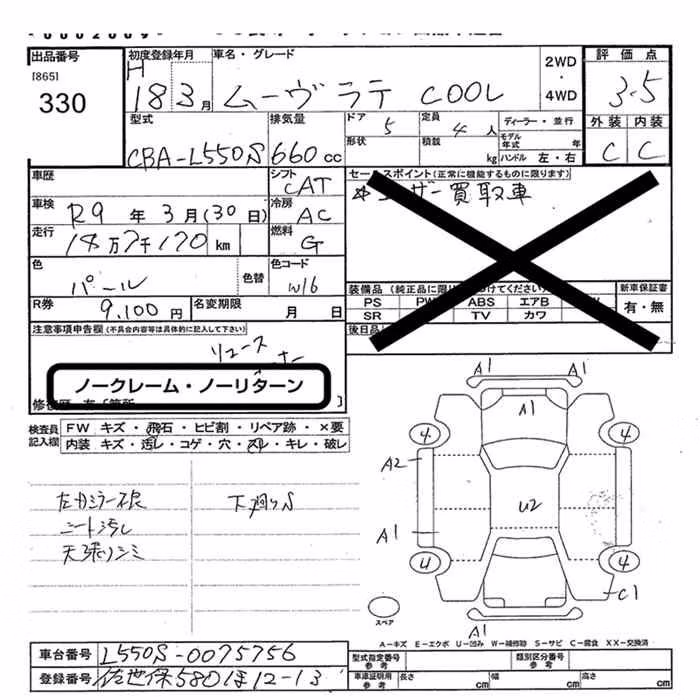 出品番号
[865]
330
初度登録年月
H
18 3月
車名・グレード
ムーヴ ラテ COOL
2WD
・
4WD
評価点
3.5
外装 内装
C C
型式
CBA-L550S
排気量
660 cc
ドア
5
定員
4 人
形状
積載
kg
ディーラー・並行
モデル年式
年式
ハンドル 左・右
車歴
シフト
CAT
セールスポイント(正常に機能するものに限ります)
ユーザー買取車
車検
R9 年 3月(30日)
冷房
AC
走行
18万7千170 km
燃料
G
色
パール
色替
色コード
W16
R券
9,100円
名変期限
月 日
装備品
PS
ABS
エアB
SR
TV
カワ
新車保証書
有・無
後日品
注意事項申告欄(不具合内容等は具体的に記入して下さい)
リユース
ノークレーム・ノーリターン
検査員
記入欄
FW キズ・飛石・ヒビ割・リペア跡・×要
内装 キズ・汚レ・コゲ・穴・スレ・キレ・破レ
左カミラー不良
シート汚レ
天張りシミ
下廻りS
A1 A1
A1
4 4
A2
U2
A1
4 4
C1
A1
スペア
A-キズ E-エクボ U-凹み W-補修跡 S-サビ C-腐食 XX-交換済
車台番号
L550S-0075756
登録番号
佐世保580ほ12-13
型式指定番号
参考
類別区分番号
参考
車庫証明用
参考
長さ cm
幅 cm
高さ cm